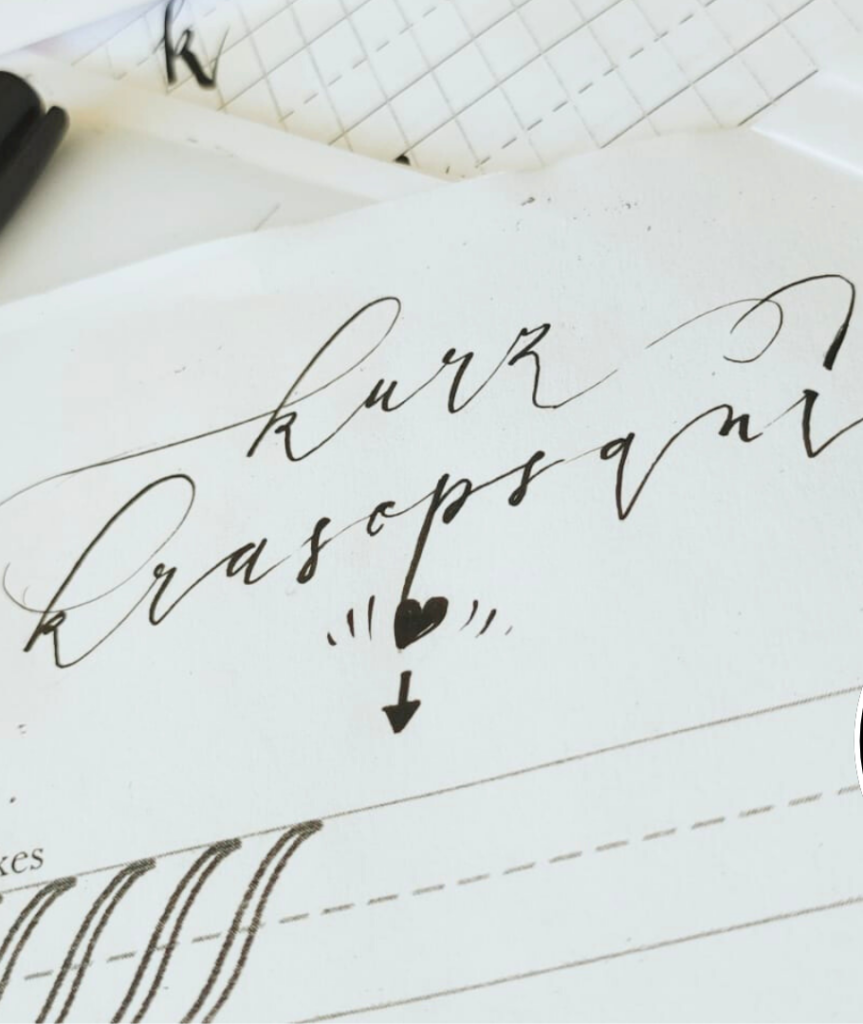 k
kurz
krasopsaní
kes